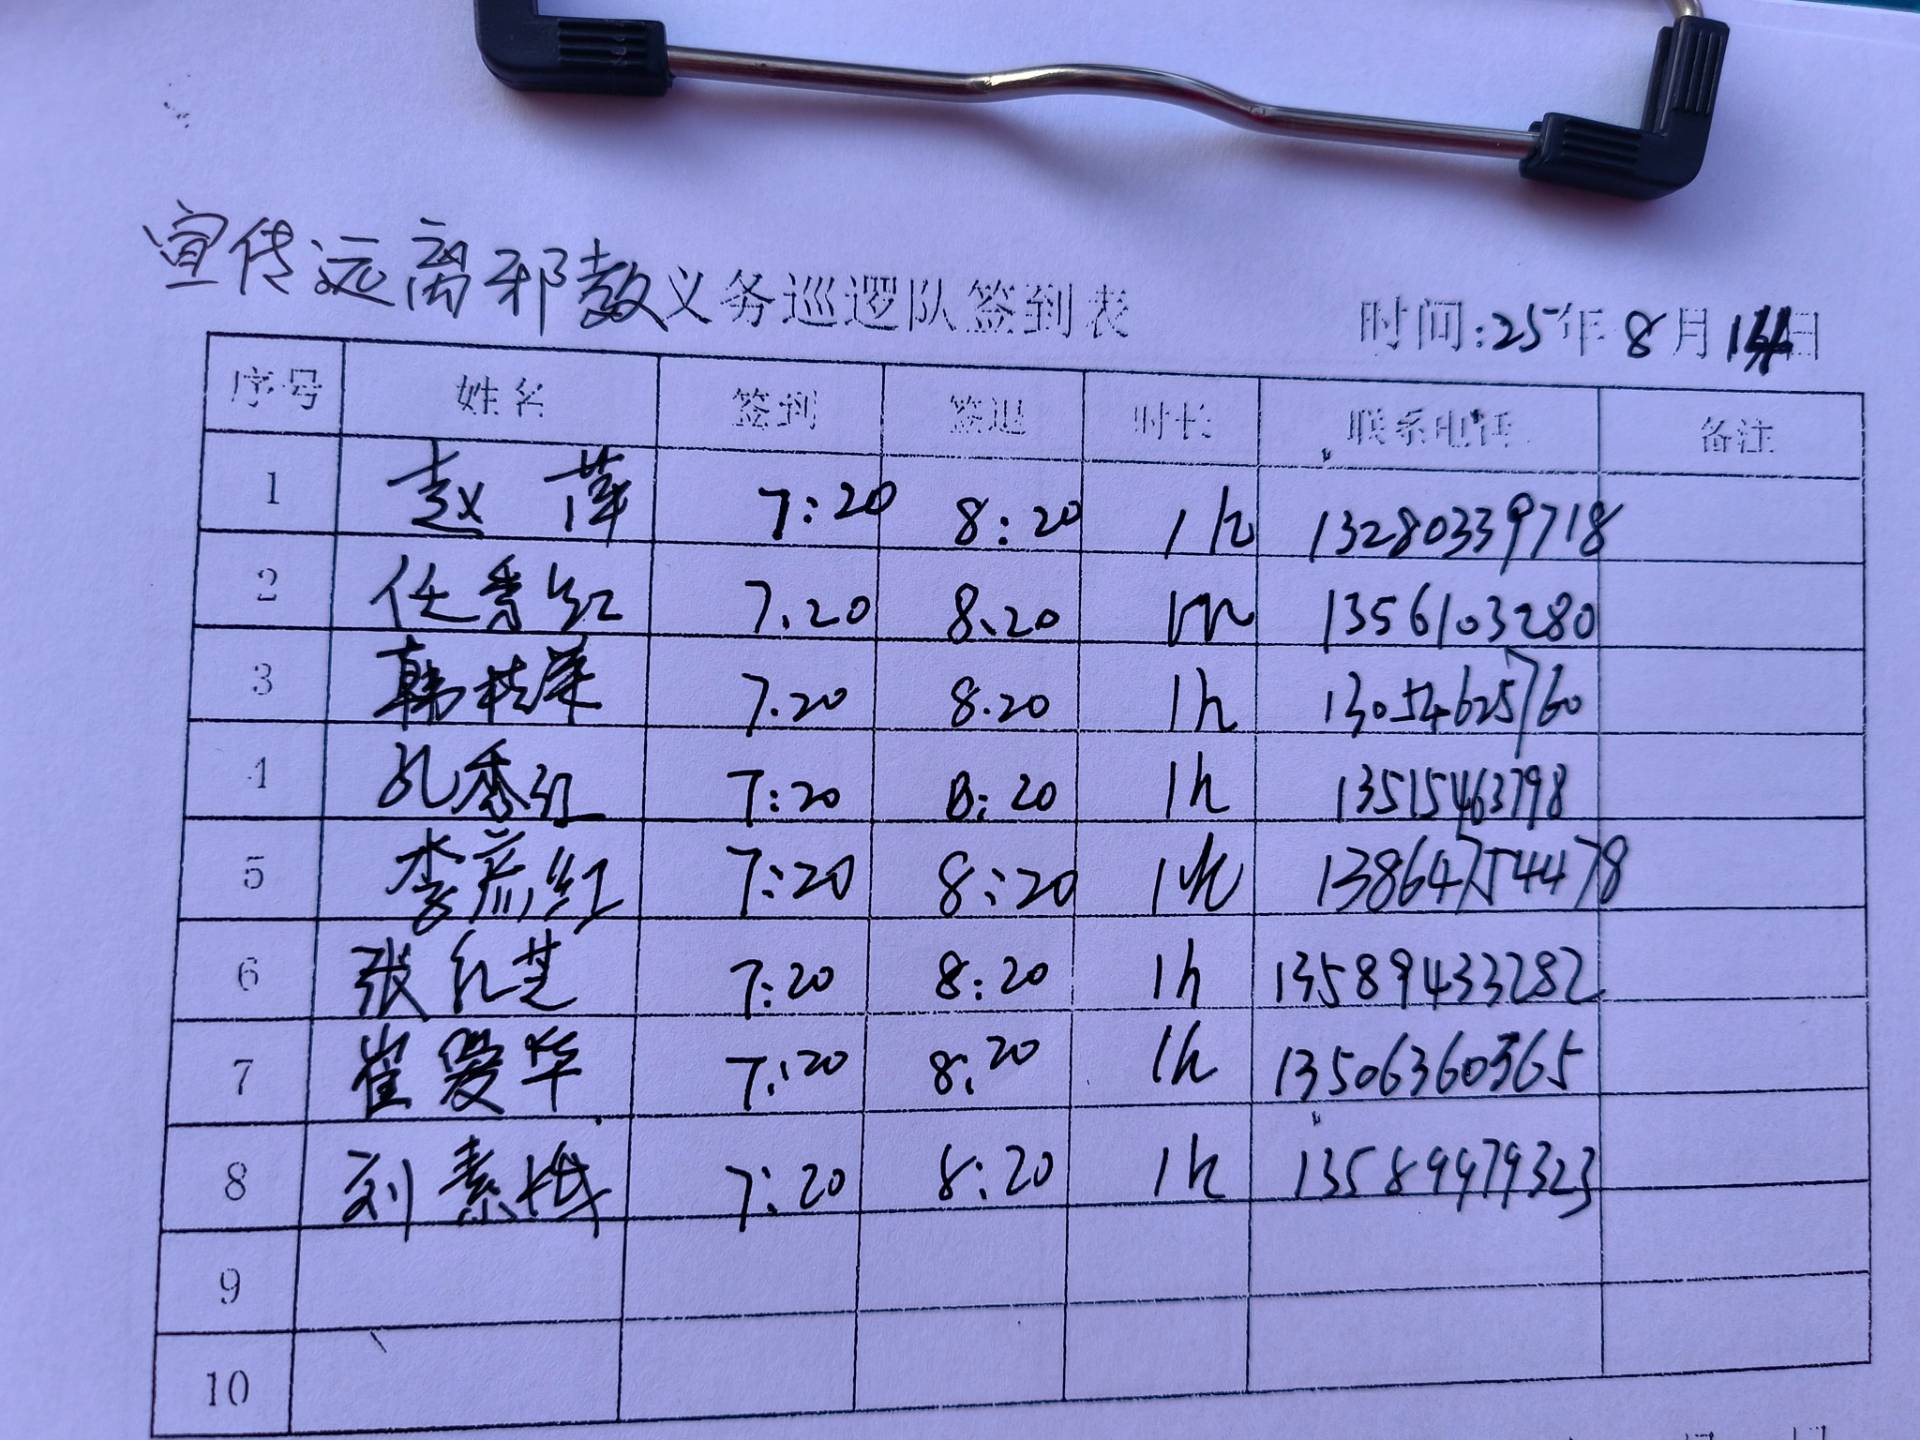 宣传远离邪教义务巡逻队签到表 时间:25年8月14日
序号 姓名 签到 签退 时长 联系电话 备注
1 赵萍 7:20 8:20 1h 13280339718
2 任秀红 7.20 8.20 1h 1356103280
3 韩桂荣 7.20 8.20 1h 13054625760
4 孔秀红 7:20 8:20 1h 13515463798
5 李彦红 7:20 8:20 1h 13864754478
6 张红芝 7:20 8:20 1h 13589433282
7 崔爱华 7:20 8:20 1h 13506360365
8 刘素梅 7:20 8:20 1h 13589979323
9
10